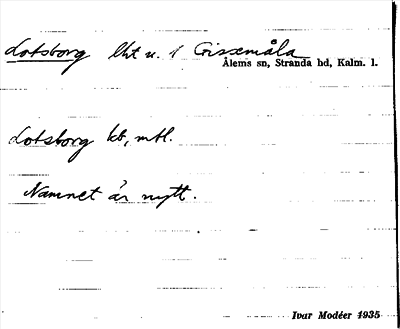 Lotsborg lht u. 1 Grissmåla
Ålems sn, Stranda hd, Kalm. l.
Lotsborg kb, mtl.
Namnet är nytt.
Ivar Modéer 1935